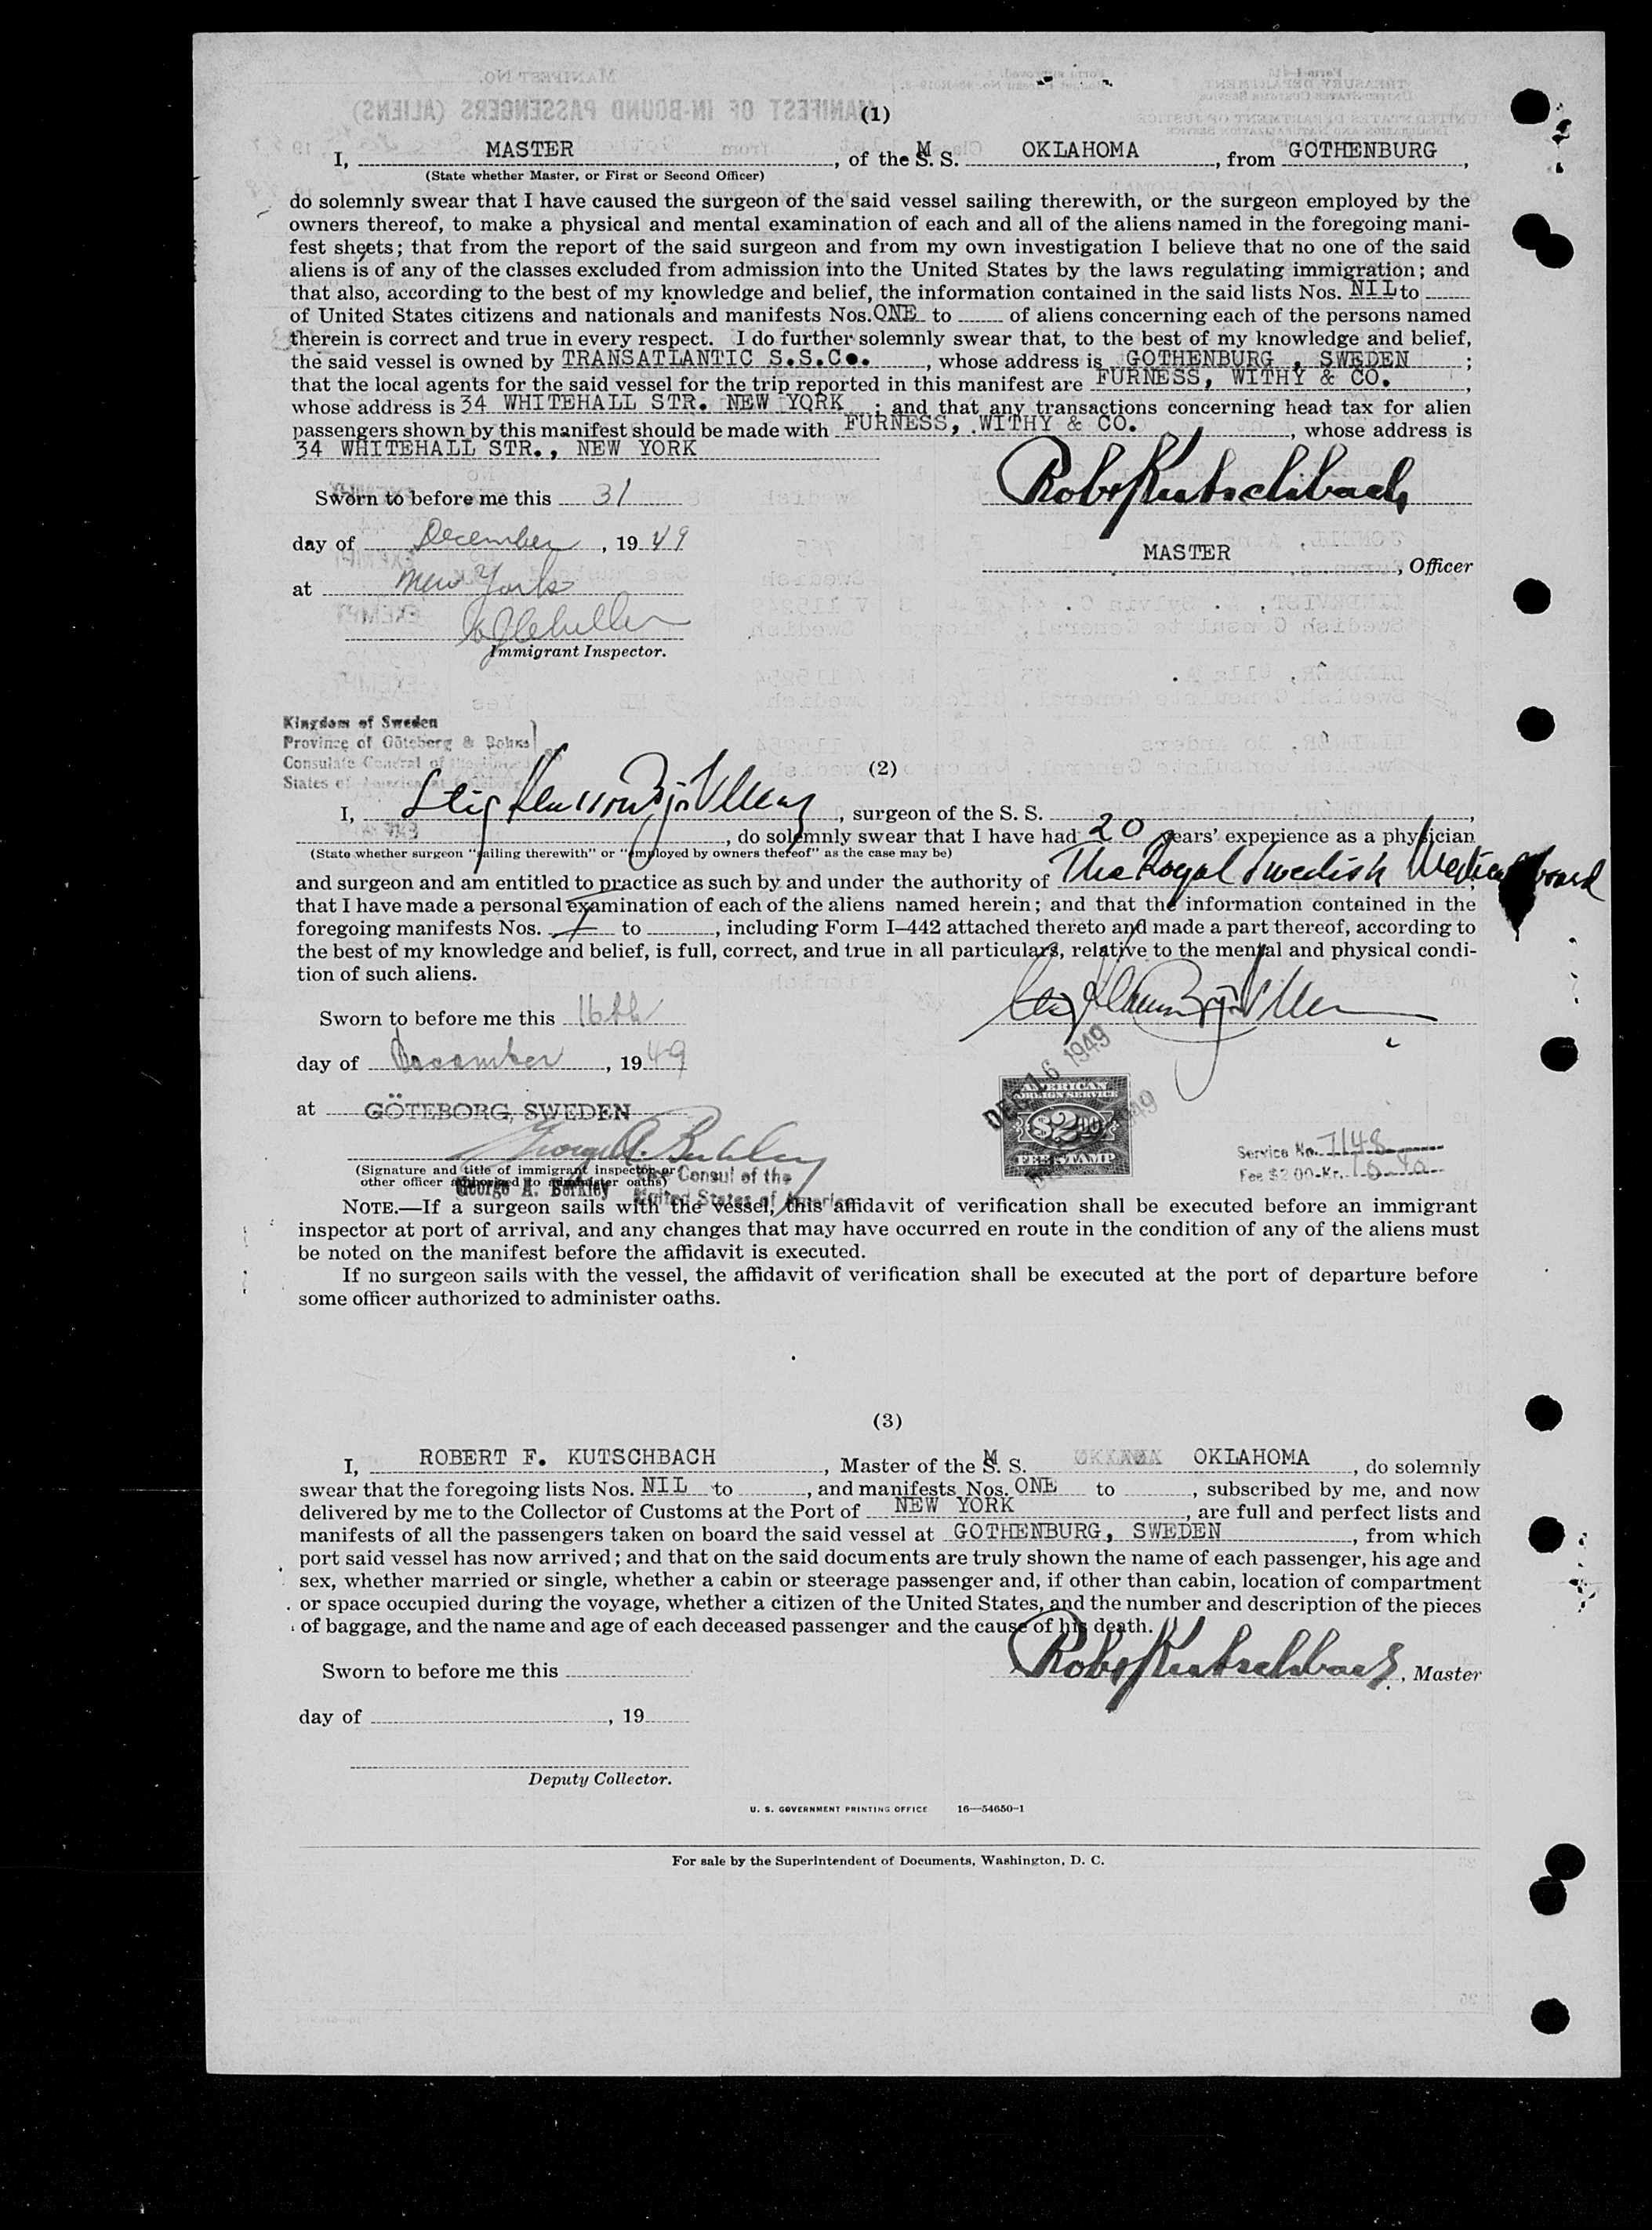 (1)
I, MASTER, of the M. S. OKLAHOMA, from GOTHENBURG,
(State whether Master, or First or Second Officer)
do solemnly swear that I have caused the surgeon of the said vessel sailing therewith, or the surgeon employed by the
owners thereof, to make a physical and mental examination of each and all of the aliens named in the foregoing mani-
fest sheets; that from the report of the said surgeon and from my own investigation I believe that no one of the said
aliens is of any of the classes excluded from admission into the United States by the laws regulating immigration; and
that also, according to the best of my knowledge and belief, the information contained in the said lists Nos. NIL to
of United States citizens and nationals and manifests Nos. ONE to of aliens concerning each of the persons named
therein is correct and true in every respect. I do further solemnly swear that, to the best of my knowledge and belief,
the said vessel is owned by TRANSATLANTIC S.S.Co., whose address is GOTHENBURG, SWEDEN;
that the local agents for the said vessel for the trip reported in this manifest are FURNESS, WITHY & CO.,
whose address is 34 WHITEHALL STR. NEW YORK; and that any transactions concerning head tax for alien
passengers shown by this manifest should be made with FURNESS, WITHY & CO., whose address is
34 WHITEHALL STR., NEW YORK
Sworn to before me this 31
Rob Kutschbach
day of December, 1949
MASTER, Officer
at New York
Immigrant Inspector.
Kingdom of Sweden
Province of Göteborg & Bohus
Consulate General of the United
States of America at Göteborg
(2)
I, Stig, surgeon of the S. S.
, do solemnly swear that I have had 20 years' experience as a physician
(State whether surgeon "sailing therewith" or "employed by owners thereof" as the case may be)
and surgeon and am entitled to practice as such by and under the authority of The Royal Swedish Medical board
that I have made a personal examination of each of the aliens named herein; and that the information contained in the
foregoing manifests Nos. 1 to , including Form I-442 attached thereto and made a part thereof, according to
the best of my knowledge and belief, is full, correct, and true in all particulars, relative to the mental and physical condi-
tion of such aliens.
Sworn to before me this 16th
day of December, 1949
DEC 16 1949
AMERICAN
FOREIGN SERVICE
$2.00
FEE STAMP
at GÖTEBORG, SWEDEN
George A. Berkley
Service No. 7148
Fee $2.00-Kr.
(Signature and title of immigrant inspector or
other officer authorized to administer oaths)
George A. Berkley
Vice Consul of the
United States of America
NOTE.—If a surgeon sails with the vessel, this affidavit of verification shall be executed before an immigrant
inspector at port of arrival, and any changes that may have occurred en route in the condition of any of the aliens must
be noted on the manifest before the affidavit is executed.
If no surgeon sails with the vessel, the affidavit of verification shall be executed at the port of departure before
some officer authorized to administer oaths.
(3)
I, ROBERT F. KUTSCHBACH, Master of the M. S. OKLAHOMA, do solemnly
swear that the foregoing lists Nos. NIL to , and manifests Nos. ONE to , subscribed by me, and now
delivered by me to the Collector of Customs at the Port of NEW YORK, are full and perfect lists and
manifests of all the passengers taken on board the said vessel at GOTHENBURG, SWEDEN, from which
port said vessel has now arrived; and that on the said documents are truly shown the name of each passenger, his age and
sex, whether married or single, whether a cabin or steerage passenger and, if other than cabin, location of compartment
or space occupied during the voyage, whether a citizen of the United States, and the number and description of the pieces
of baggage, and the name and age of each deceased passenger and the cause of his death.
Sworn to before me this
Rob Kutschbach, Master
day of , 19
Deputy Collector.
U. S. GOVERNMENT PRINTING OFFICE 16—54650-1
For sale by the Superintendent of Documents, Washington, D. C.